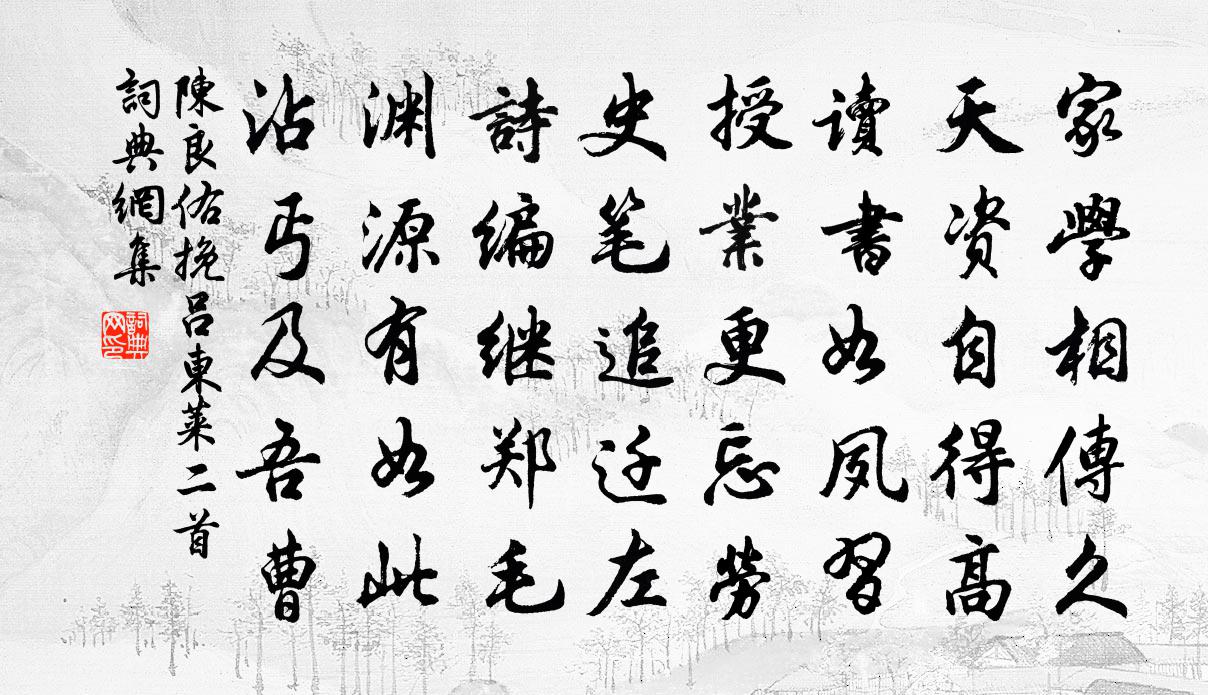 家學相傳久
天资自得高
讀書如夙習
授業更忘勞
史笔追迁左
詩编继郑毛
渊源有如此
沾丐及吾曹
陳良佑挽呂東萊二首
詞典網集
詞典网印